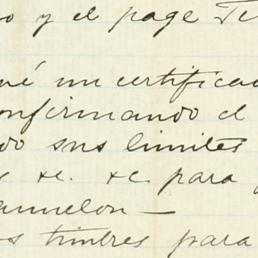 o y el page Te
é un certificad
onfirmando el
do sus limites
s &c. &c. para
amelon —
os timbres para